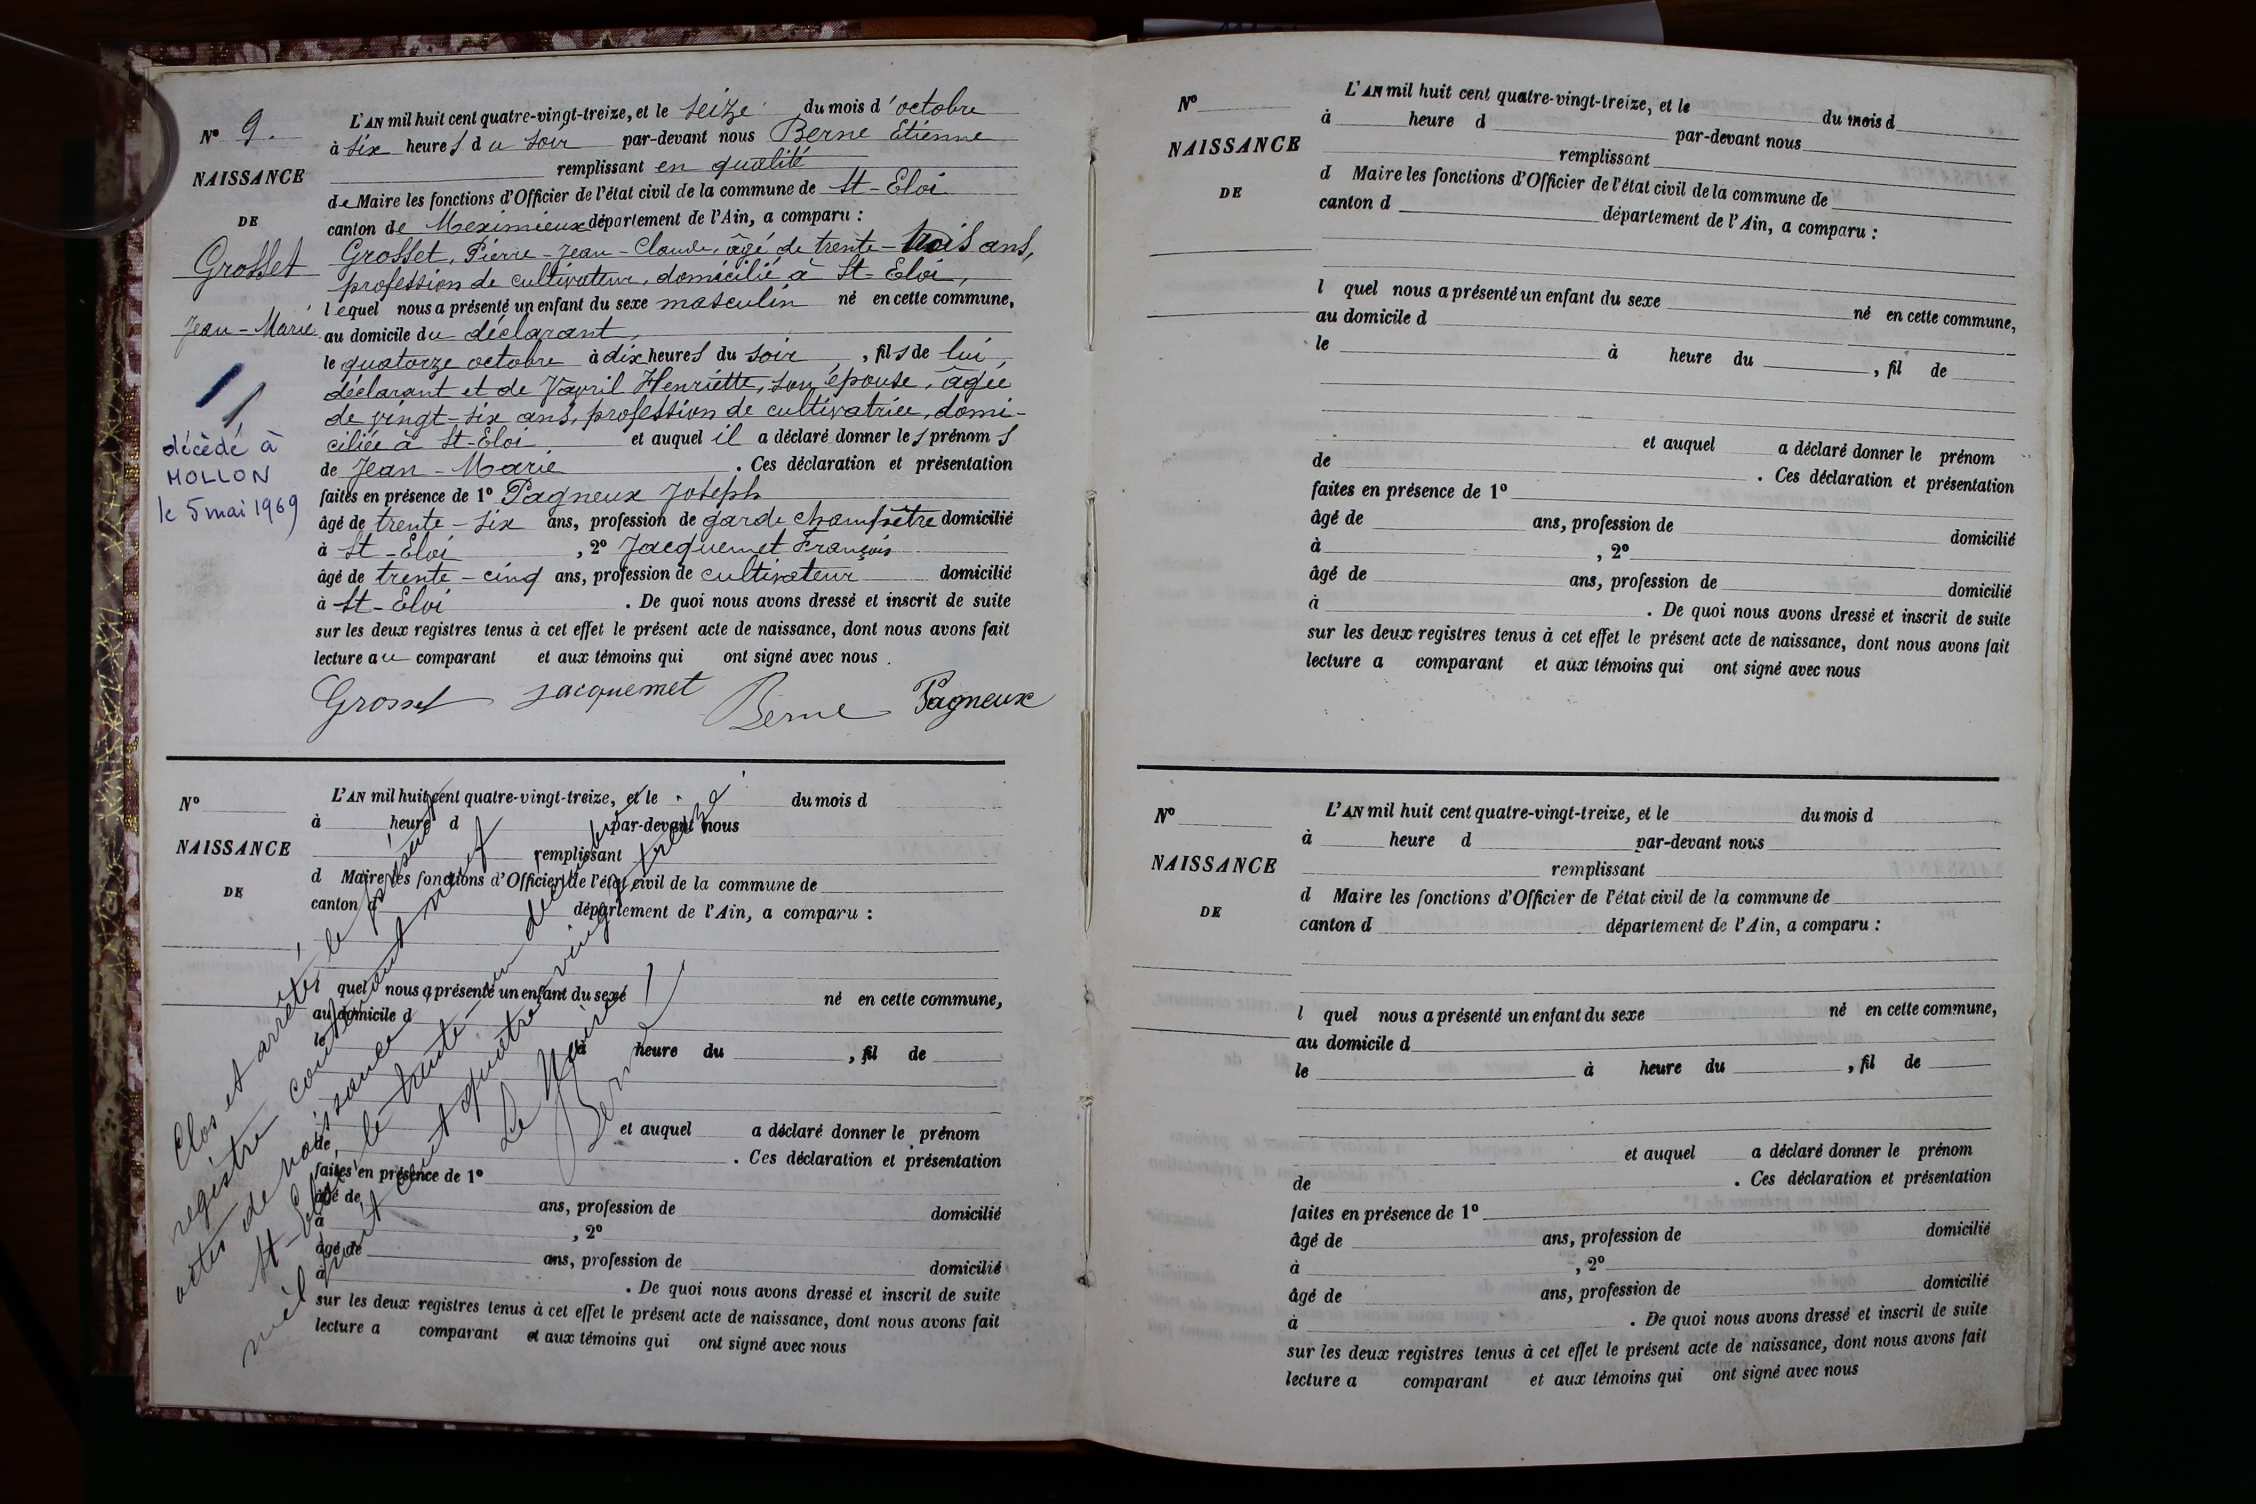 N° 9.
NAISSANCE
DE
Grosset
Jean-Marie
décédé à
MOLLON
le 5 mai 1969
L'AN mil huit cent quatre-vingt-treize, et le seize du mois d'octobre
à six heures du soir par-devant nous Berne Etienne
remplissant en qualité
de Maire les fonctions d'Officier de l'état civil de la commune de St-Eloi
canton de Meximieux département de l'Ain, a comparu :
Grosset, Pierre-Jean-Claude, âgé de trente-trois ans,
profession de cultivateur, domicilié à St-Eloi,
lequel nous a présenté un enfant du sexe masculin né en cette commune,
au domicile du déclarant,
le quatorze octobre à dix heures du soir, fils de lui,
déclarant et de Vavril Henriette, son épouse, âgée
de vingt-six ans, profession de cultivatrice, domi-
ciliée à St-Eloi et auquel il a déclaré donner les prénoms
de Jean-Marie. Ces déclaration et présentation
faites en présence de 1° Pagneux Joseph
âgé de trente-six ans, profession de garde champêtre domicilié
à St-Eloi, 2° Jacquemet François
âgé de trente-cinq ans, profession de cultivateur domicilié
à St-Eloi. De quoi nous avons dressé et inscrit de suite
sur les deux registres tenus à cet effet le présent acte de naissance, dont nous avons fait
lecture au comparant et aux témoins qui ont signé avec nous.
Grosset Jacquemet Berne Pagneux
N°
NAISSANCE
DE
L'AN mil huit cent quatre-vingt-treize, et le du mois d
à heure d par-devant nous
remplissant
d Maire les fonctions d'Officier de l'état civil de la commune de
canton d département de l'Ain, a comparu :
quel nous a présenté un enfant du sexe né en cette commune,
au domicile d
le à heure du , fil de
et auquel a déclaré donner le prénom
de . Ces déclaration et présentation
faites en présence de 1°
âgé de ans, profession de domicilié
à , 2°
âgé de ans, profession de domicilié
à . De quoi nous avons dressé et inscrit de suite
sur les deux registres tenus à cet effet le présent acte de naissance, dont nous avons fait
lecture a comparant et aux témoins qui ont signé avec nous
Clos et arrêté le présent
registre contenant neuf
actes de naissance
St-Eloi, le trente-un décembre
mil huit cent quatre-vingt-treize
Le Maire
Berne
N°
NAISSANCE
DE
L'AN mil huit cent quatre-vingt-treize, et le du mois d
à heure d par-devant nous
remplissant
d Maire les fonctions d'Officier de l'état civil de la commune de
canton d département de l'Ain, a comparu :
l quel nous a présenté un enfant du sexe né en cette commune,
au domicile d
le à heure du , fil de
et auquel a déclaré donner le prénom
de . Ces déclaration et présentation
faites en présence de 1°
âgé de ans, profession de domicilié
à , 2°
âgé de ans, profession de domicilié
à . De quoi nous avons dressé et inscrit de suite
sur les deux registres tenus à cet effet le présent acte de naissance, dont nous avons fait
lecture a comparant et aux témoins qui ont signé avec nous
N°
NAISSANCE
DE
L'AN mil huit cent quatre-vingt-treize, et le du mois d
à heure d par-devant nous
remplissant
d Maire les fonctions d'Officier de l'état civil de la commune de
canton d département de l'Ain, a comparu :
l quel nous a présenté un enfant du sexe né en cette commune,
au domicile d
le à heure du , fil de
et auquel a déclaré donner le prénom
de . Ces déclaration et présentation
faites en présence de 1°
âgé de ans, profession de domicilié
à , 2°
âgé de ans, profession de domicilié
à . De quoi nous avons dressé et inscrit de suite
sur les deux registres tenus à cet effet le présent acte de naissance, dont nous avons fait
lecture a comparant et aux témoins qui ont signé avec nous